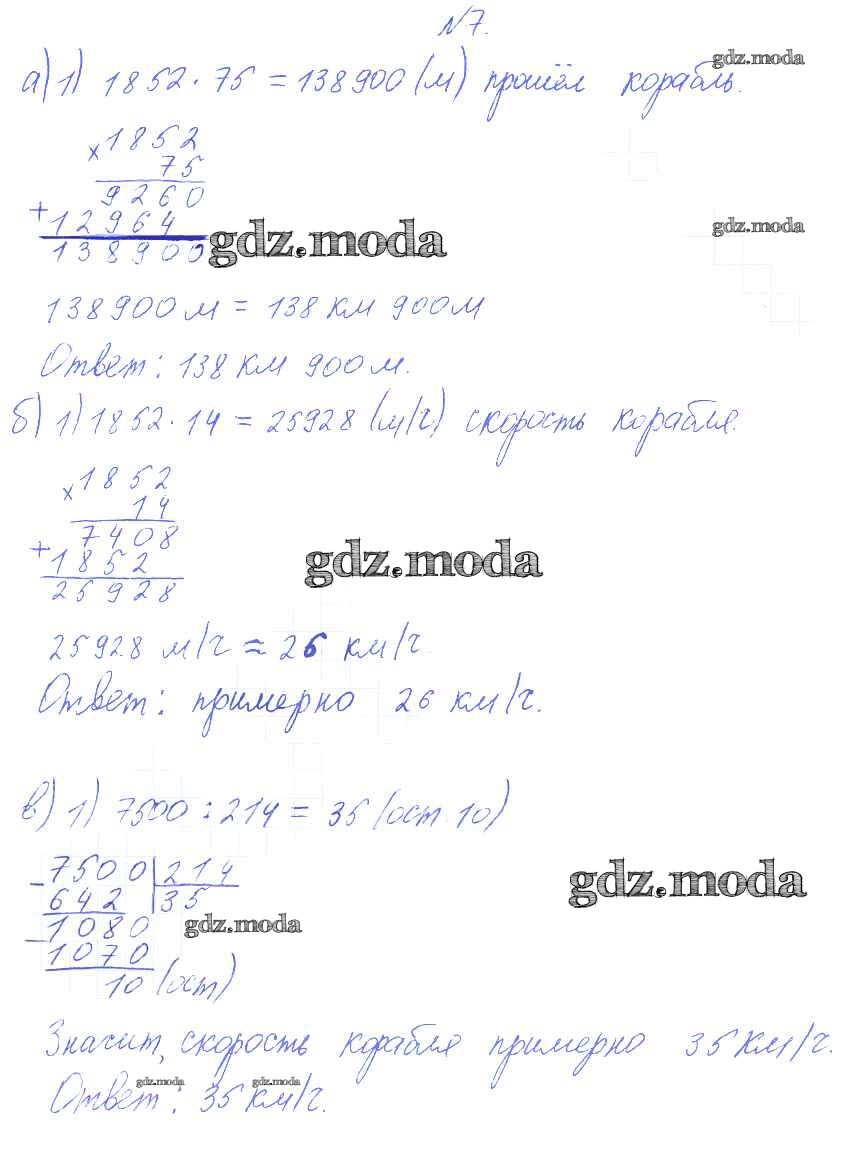 №7.
а) 1) 1852 · 75 = 138900 (м) прошёл корабль.
gdz.moda
× 1852
75
9260
+ 12964
138900
gdz.moda
gdz.moda
138900 м = 138 км 900 м
Ответ: 138 км 900 м.
б) 1) 1852 · 14 = 25928 (м/ч) скорость корабля.
× 1852
14
7408
+ 1852
25928
gdz.moda
25928 м/ч ≈ 26 км/ч.
Ответ: примерно 26 км/ч.
в) 1) 7500 : 214 = 35 (ост. 10)
- 7500 | 214
642 | 35
gdz.moda
- 1080
gdz.moda
1070
10 (ост)
Значит, скорость корабля примерно 35 км/ч.
gdz.moda gdz.moda
Ответ: 35 км/ч.